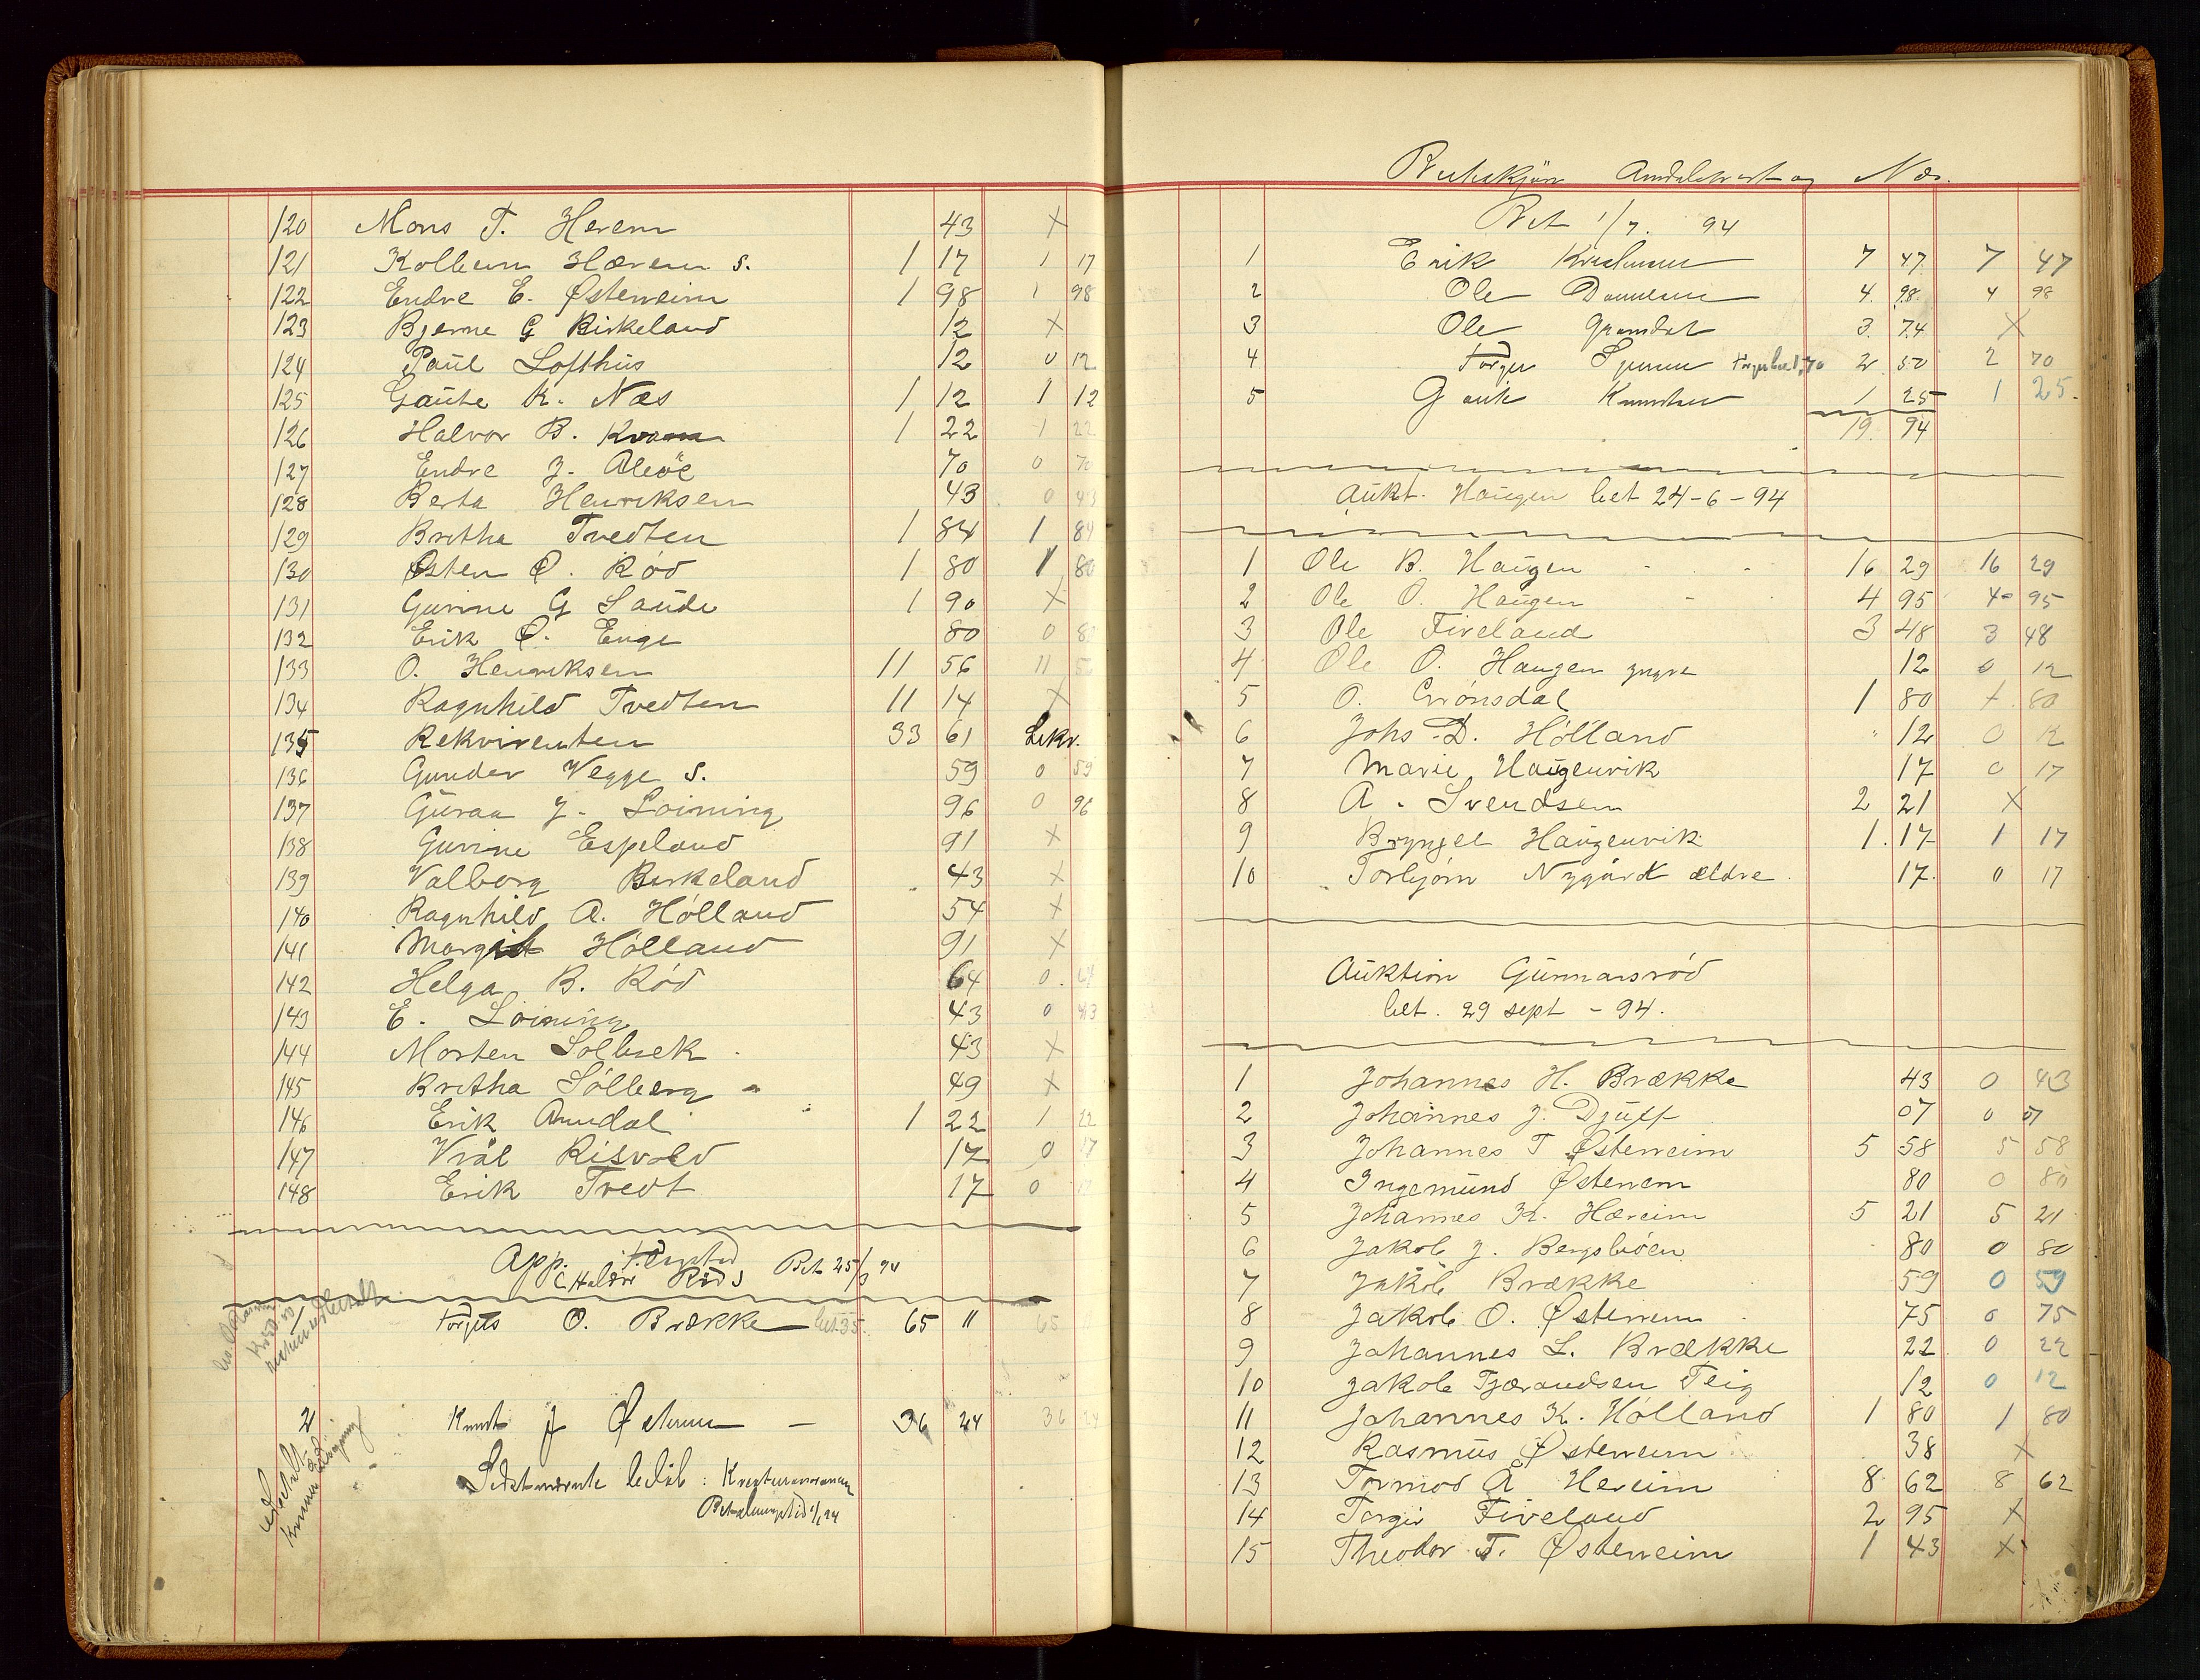 120 Mons T. Herem 43 X
121 Kolbein Hærem s. 1 17 1 17
122 Endre E. Østerreim 1 98 1 98
123 Bjerne G Birkeland 12 X
124 Paul Lofthus 12 0 12
125 Gaute K. Næs 1 12 1 12
126 Halvor B. Kvam 1 22 1 22
127 Endre J. Aleøe 70 0 70
128 Berta Henriksen 43 0 43
129 Britha Tvedten 1 84 1 84
130 Østen Ø. Rød 1 80 1 80
131 Gurine G Saude 1 90 X
132 Erik Ø. Enge 80 0 80
133 O. Henriksen 11 56 11 56
134 Ragnhild Tvedten 11 14 X
135 Rekvirenten 33 61
136 Gunder Vegge s. 59 0 59
137 Guraa J. Loining 96 0 96
138 Gurine Espeland 91 X
139 Valborg Berkeland 43 X
140 Ragnhild A. Hólland 54 X
141 Margit Hólland 91 X
142 Helga B. Ród 64 0 64
143 E. Loining 43 0 43
144 Morten Solbrek 43 X
145 Britha Sólberg 49 X
146 Erik Amdal 1 22 1 22
147 Vräl Risvold 17 0 17
148 Erik Tvedt 17 0 17
App. Bet 25/3 94
(Haldor Røds
Torgils O. Brække bet 35 65 11 65
2 Knut J Østerrem – 36 24 36 24
Amdal og Næs.
Bet 1/7. 94
1 Erik 7 47 7 47
2 Ole 4 98 4 98
3 Ole 3 74 X
4 Torger 2 50 2 70
5 1 25 1 25
19 94
Aukt. Haugen bet 24-6-94
1 Ole B. Haugen 16 29 16 29
2 Ole O. Haugen 4 95 4 95
3 Ole Fiveland 3 48 3 48
4 Ole O. Haugen yngre 12 0 12
5 O. Grónsdal 1 80 1 80
6 Johs D. Hólland 12 0 12
7 Marie Haugenvik 17 0 17
8 A. Svendsen 2 21 X
9 Bryngel Haugenvik 1 17 1 17
10 Torbjórn Nygård ældre 17 0 17
Auktion Gunnarsród
bet. 29 sept - 94.
1 Johannes H. Brække 43 0 43
2 Johannes J. Djuff 07 0 07
3 Johannes T Østerreim 5 58 5 58
4 Ingemund Østerrem 80 0 80
5 Johannes K. Hæreim 5 21 5 21
6 Jakob J. Bergsbóen 80 0 80
7 Jakob Brække 59 0 59
8 Jakob O. Østerrem 75 0 75
9 Johannes L. Brække 22 0 22
10 Jakob Tjærandsen Teig 12 0 12
11 Johannes K. Hólland 1 80 1 80
12 Rasmus Østerreim 38 X
13 Tormod A Hereim 8 62 8 62
14 Torgir Fiveland 2 95 X
15 Theodor T. Østerreim 1 43 X